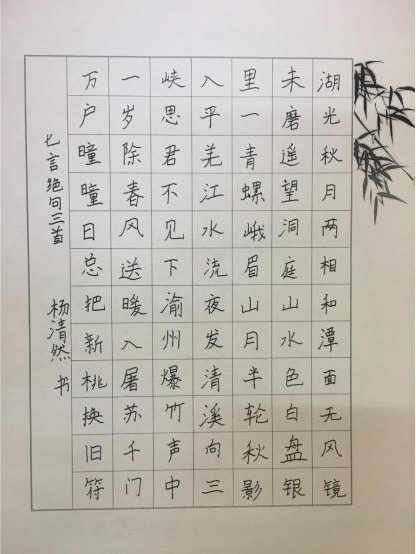 湖光秋月两相和潭面无风镜
未磨遥望洞庭山水色白盘银
里一青螺峨眉山月半轮秋影
入平羌江水流夜发清溪向三
峡思君不见下渝州爆竹声中
一岁除春风送暖入屠苏千门
万户曈曈日总把新桃换旧符
七言绝句三首 杨清然 书